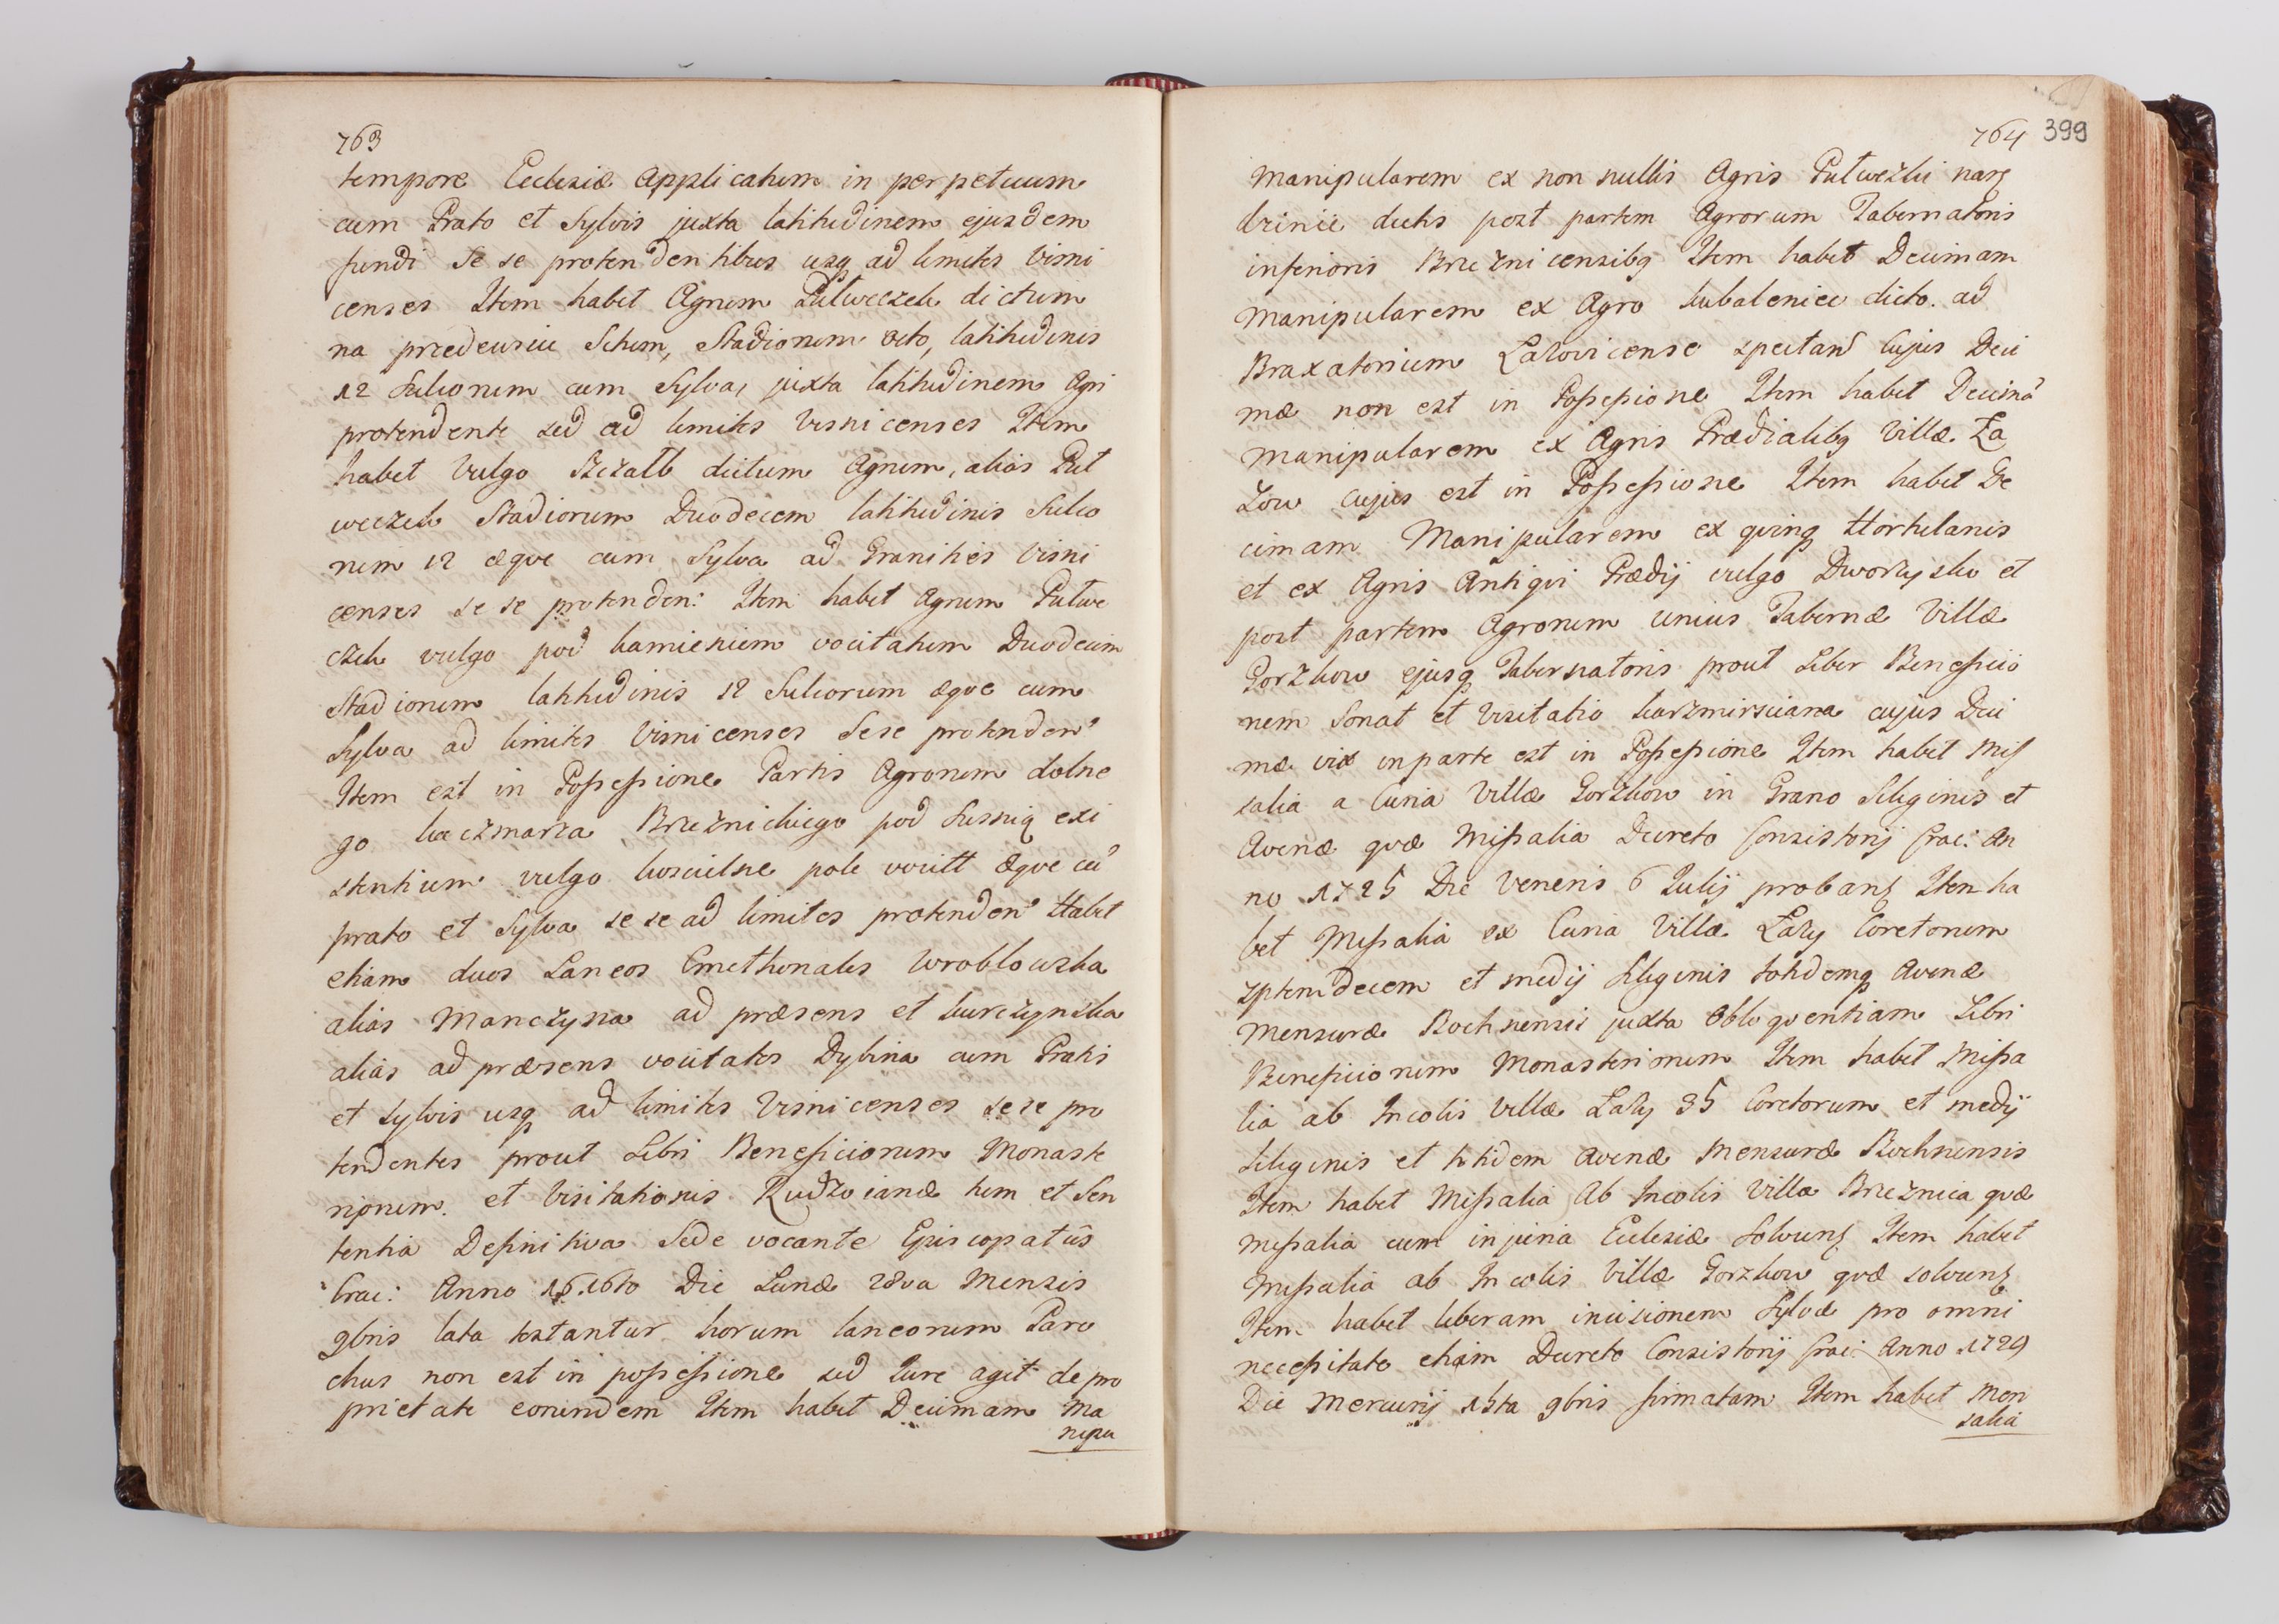 763
tempore Ecclesiæ Applicatum in perpetuum
cum Prato et Sylvis juxta latitudinem ejusdem
fundi se se protendentibus usq ad limites Visni
censes Item habet Agrum Pułweczek dictum
na przedewsiu Situm, Stadiorum octo, latitudinis
12 Sulcorum cum Sylva, juxta latitudinem Agri
protendente sed ad limites Visnicenses Item
habet Vulgo dictum Agrum, alias Puł
weczek Stadiorum Duodecem latitudinis Sulco
rum 12 æque cum Sylva ad Granities Visni
censes se se protenden: Item habet Agrum Pułwe
czek vulgo pod kamieniem vocitatum Duodecim
Stadiorum latitudinis 12 Sulcorum æque cum
Sylva ad limites Visnicenses Sese protenden
Item est in Possessione Partis Agrorum dolne
go kaczmarza Brzeznickiego pod Lesnią exi
stentium vulgo koscielne pole vocitt Æque cu
prato et Sylva se se ad limites protenden Habet
etiam duos Laneos Cmethonales Wroblowska
alias Manczyna ad præsens et kurczynska
alias ad præsens vocitates Dylina cum Pratis
et Sylvis usq ad limites Visnicenses sese pro
tendentes prout Libri Beneficiorum Monaste
riorum et Visitationis Rudzoianæ tum et Sen
tentia Definitiva Sede vocante Episcopatûs
Crac: Anno 1616to Die Lunæ 28va Mensis
9bris lata testantur horum laneorum Paro
chus non est in possessione sed Iure agit de pro
prietate eorundem Item habet Decimam Ma
nipu
764 399
Manipularem ex non nullis Agris Pułwezki
dictis post partem Agrorum Tabernatoris
inferioris Brzeznicensibq Item habet Decimam
Manipularem ex Agro kubaleniec dicto ad
Braxatorium Lazovicense spectan Cujus Deci
mæ non est in Possessione Item habet Decima
Manipularem ex Agris Prædialibq Villæ Ła
zow cujus est in Possessione Item habet De
cimam Manipularem ex qvinq Hortulanis
et ex Agris Antiqvi Prædij vulgo Dworzysko et
post partem Agrorum unius Tabernæ Villæ
Gorzkow ejusq Tabernatoris prout Liber Beneficio
rum Sonat et Visitatio kazmirsciana cujus Deci
mæ vix in parte est in Possessione Item habet Mis
salia a Curia Villæ Gorzkow in Grano Siliginis et
Avenæ qvæ Missalia Decreto Consistorij Crac: An
no 1725 Die Veneris 6 Iulij probant Item ha
bet Missalia ex Curia Villæ Łazy Coretorum
septemdecem et medij Siliginis totidemq Avenæ
Mensuræ Bochnensis juxta Obloqventiam Libri
Beneficiorum Monasteriorum Item habet Missa
lia ab Incolis Villæ Łazy 35 Coretorum et medij
Siliginis et totidem Avenæ Mensuræ Bochnensis
Item habet Missalia Ab Incolis Villæ Brzeznica qvæ
Missalia cum injuria Ecclesiæ Solvunt Item habet
Missalia ab Incolis Villæ Gorzkow qvæ solvunt
Item habet liberam incisionem Sylvæ pro omni
necessitate etiam Decreto Consistorij Crac: Anno 1729
Die Mercurij 16ta 9bris firmatam Item habet Men
salia